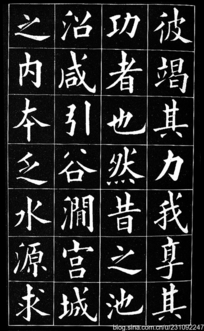 彼竭其力我享其
功者也然昔之池
沼咸引谷澗宮城
之内本乏水源求
blog.sina.com.cn/u/231092247